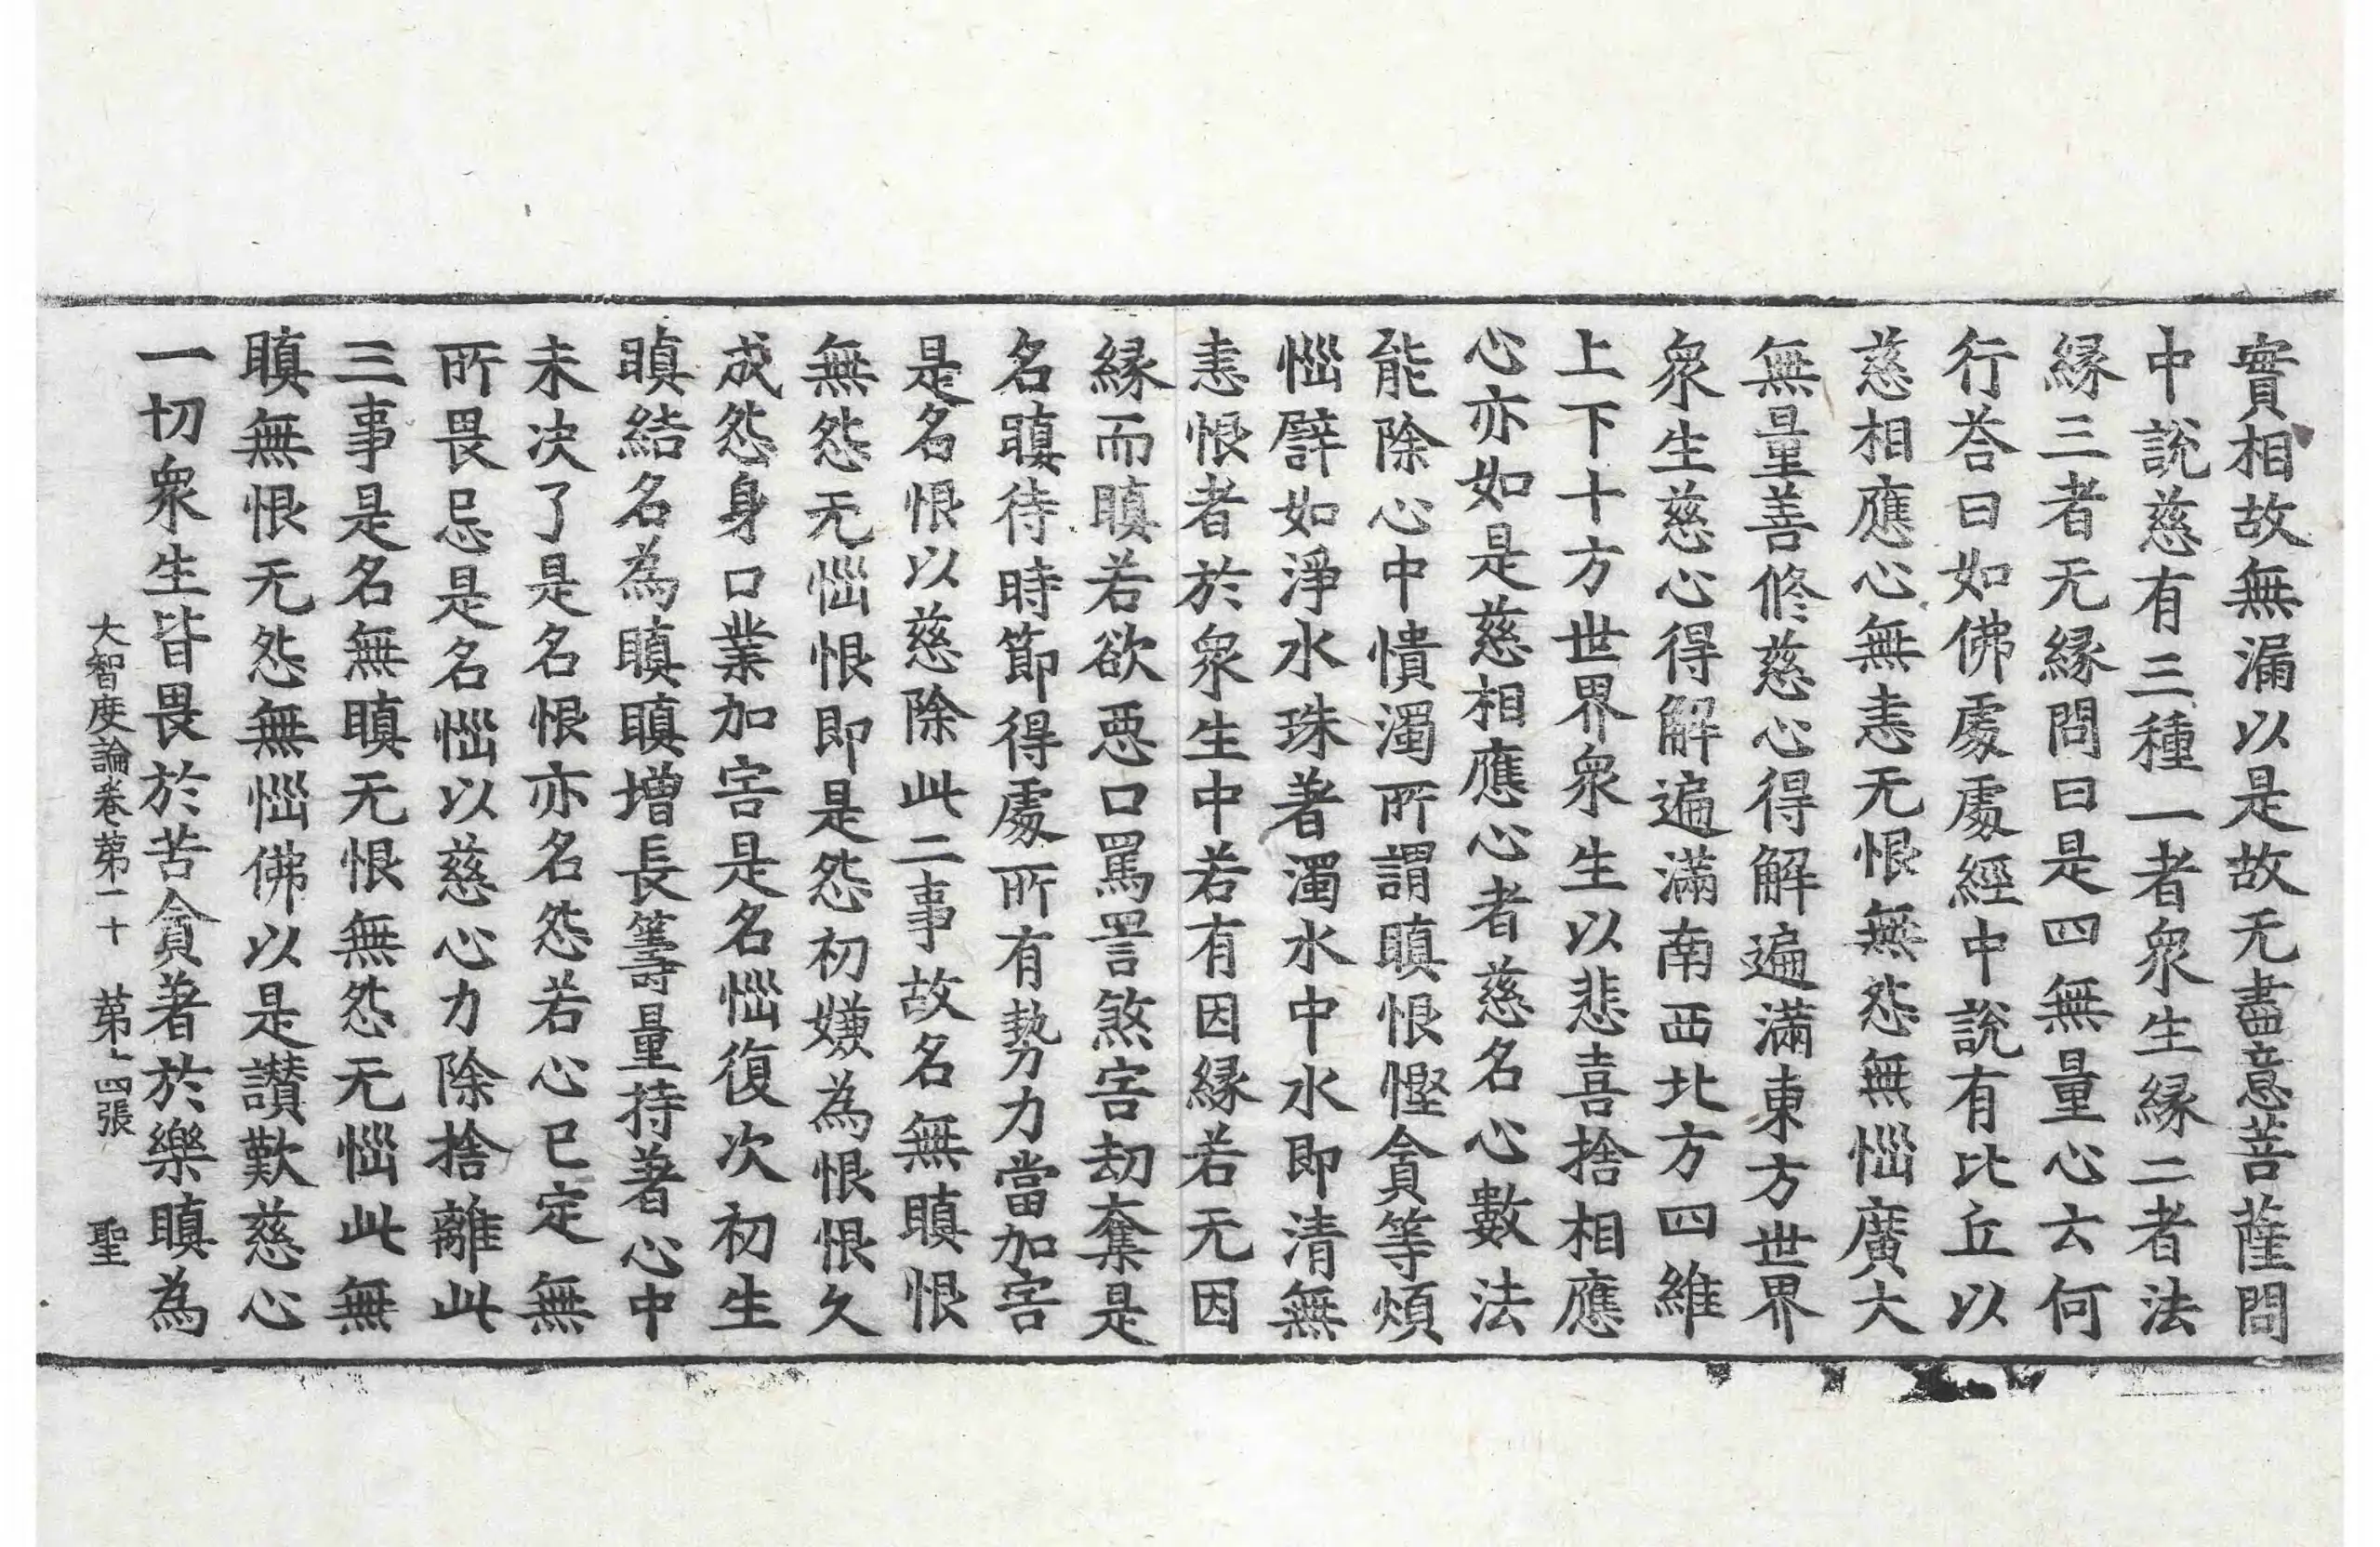 實相故無漏以是故无盡意菩薩問
中說慈有三種一者衆生緣二者法
緣三者无緣問曰是四無量心云何
行荅曰如佛處處經中說有比丘以
慈相應心無恚无恨無怨無惱廣大
無量善修慈心得解遍滿東方世界
衆生慈心得解遍滿南西北方四維
上下十方世界衆生以悲喜捨相應
心亦如是慈相應心者慈名心數法
能除心中憒濁所謂瞋恨慳貪等煩
惱譬如淨水珠著濁水中水即清無
恚恨者於衆生中若有因緣若无因
緣而瞋若欲惡口罵詈煞害劫奪是
名瞋待時節得處所有勢力當加害
是名恨以慈除此二事故名無瞋恨
無怨无惱恨即是怨初嫌為恨恨久
成怨身口業加害是名惱復次初生
瞋結名為瞋瞋增長籌量持著心中
未决了是名恨亦名怨若心已定無
所畏忌是名惱以慈心力除捨離此
三事是名無瞋无恨無怨无惱此無
瞋無恨无怨無惱佛以是讃歎慈心
一切衆生皆畏於苦貪著於樂瞋為
大智度論卷第二十 第七四張 聖